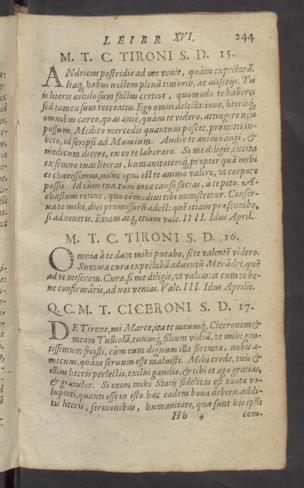 LEIBR XVI. 244
M. T. C. TIRONI S. D. 15.
ANdricus postridie ad me venit, quàm expectarã.
Itaq, habui noctem plenã timoris, ac miseriæ. Tu
is literis nihilo sum factus certior, quomodo te haberes:
sed tamen sum recreatus. Ego omni delectatione, literisq́,
omnibus careo, quas ante, quàm te videro, attingere non
possum. Medico mercedis quantum poscet, promitti iu-
beto, id scripsi ad Mumium. Audio te animo angi, &
medicum dicere, ex eo te laborare. Si me diligis, excita
ex somno tuas literas, humanitatemq́, propter quã mihi
es charissimus, nũnc opus est te animo valere, vt corpore
possis. Id cùm tua, tum mea causa facias, a te peto. A-
chastum retine, quo cõmodius tibi ministretur. Conser-
ua te mihi, dies promissorũ adest: quẽ etiam præstabo,
si adueneris. Etiam atq, etiam vale. IIII. Idus April.
M. T. C. TIRONI S. D. 16.
OMnia à te data mihi putabo, si te valentẽ videro.
Summa cura expectabã aduentũ Menãdri, quẽ
ad te miserã. Cura, si me diligis, vt valeas: & cum te be-
ne confirmâris, ad nos venias. Vale. III. Idus Aprilis.
Q. C. M. T. CICERONI S. D. 17.
DE Tirone, mi Marce, ita te meumq́, Ciceronem &
meam Tulliolã, tuumq́, filium videã, vt mihi gra-
tissimum fecisti, cùm eum dignum illa fortuna, nobis a-
micum, quàm seruum esse maluisti. Mihi crede, tuis &
illius literis perlectis, exilui gaudio, & tibi et ago gratias,
& gratulor. Si enim mihi Statij fidelitas est tanta vo-
luptati, quanti esse in isto hæc eadem bona debent, additis
literis, sermonibus, humanitate, quæ sunt his ipsis
Hh 4 com-